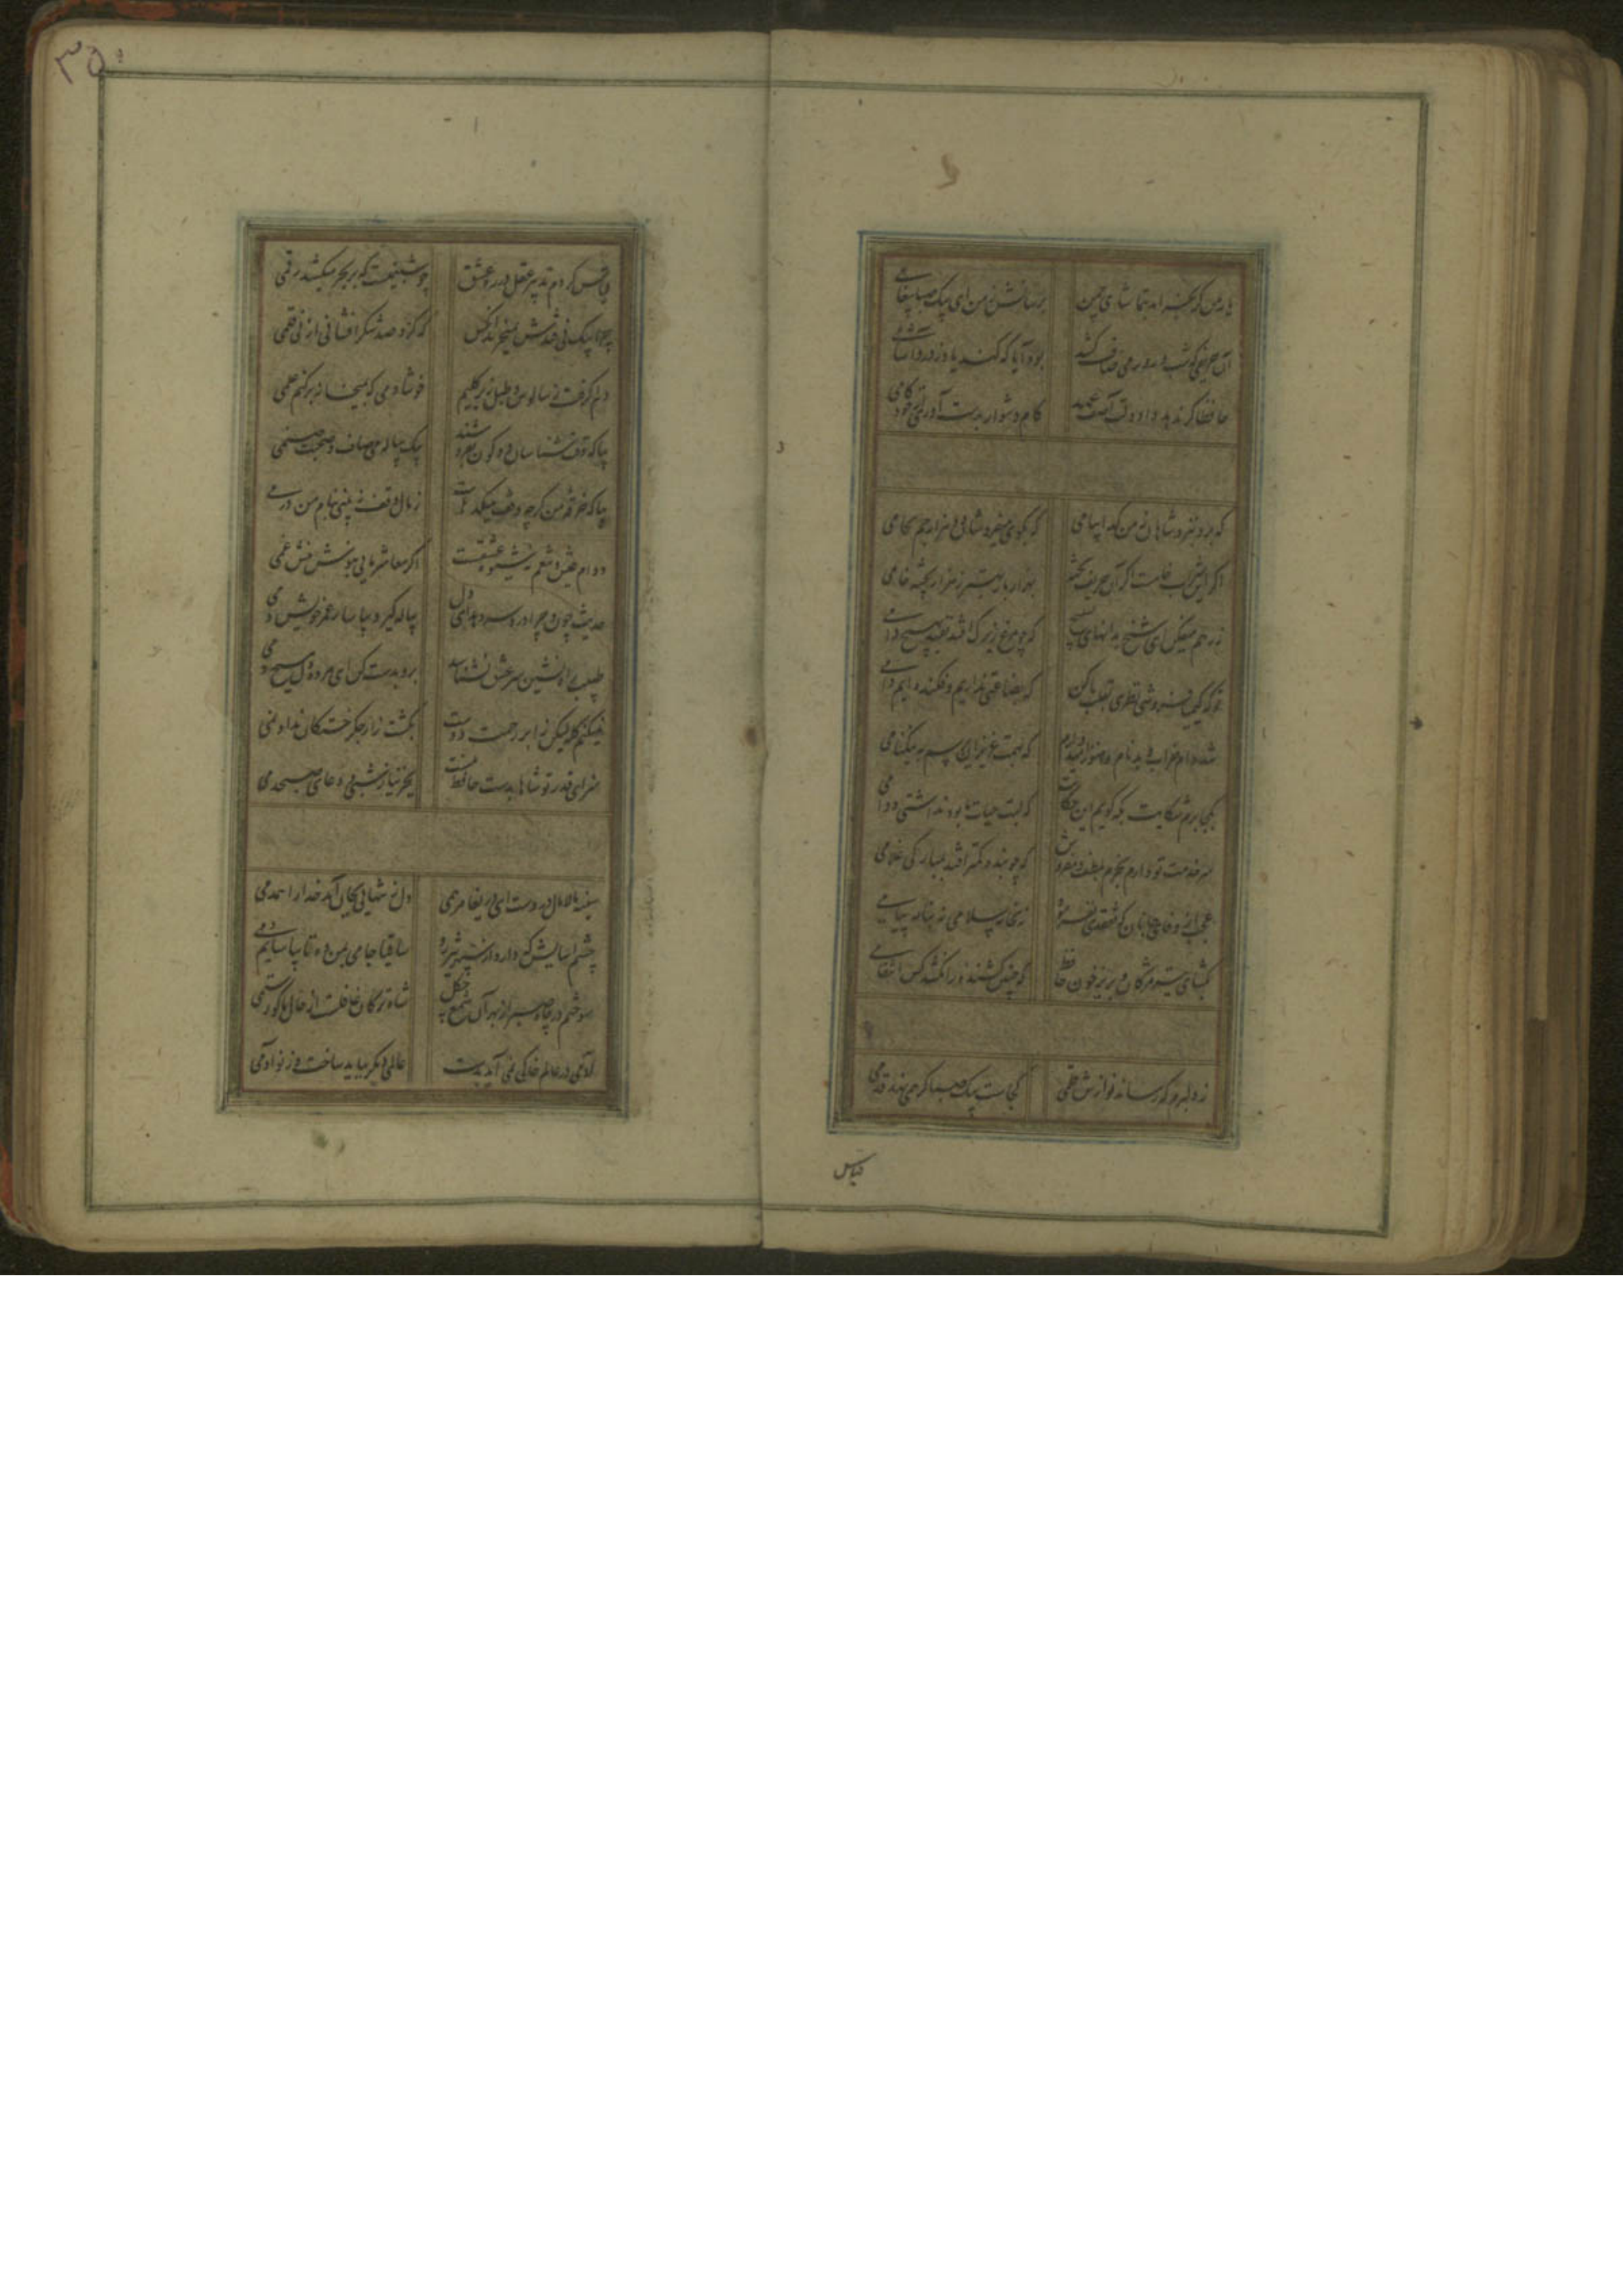 ۳۵۰
یار من که بخرامد بتماشای چمن برسانش ز من ای پیک صبا پیغامی
آن حریفی که شب و روز می صاف کشد بود آیا که کند یاد ز درد آشامی
حافظا گر ندهد داد دلت آصف عهد کام دشوار بدست آوری از خود کامی
که برد بنزد شاهان ز من گدا پیامی که بکوی میفروشان دو هزار جم بجامی
اگر این شراب خامست اگر آن حریف پخته بهزار بار بهتر ز هزار پخته خامی
ز رهم میفکن ای شیخ بدانهای تسبیح که چو مرغ زیرک افتد نفتد بهیچ دامی
تو که کیمیا فروشی نظری بقلب ما کن که بضاعتی نداریم و فکنده‌ایم دامی
شده‌ام خراب و بدنام و هنوز امیدوارم که بهمت عزیزان برسم به نیکنامی
بکجا برم شکایت بکه گویم این حکایت که لبت حیات ما بود نداشتی دوامی
سر خدمت تو دارم بخرم بلطف و مفروش که چو بنده کمتر افتد بمبارکی غلامی
عجب از وفای جانان که تفقدی نفرمود نه بخامه سلامی نه بنامه پیامی
بگشای تیر مژگان و بریز خون حافظ که چنین کشنده را نکشد کس انتقامی
ز دلبرم که رساند نوازش قلمی کجاست پیک صبا گر همی نهد قدمی
قیاس
قیاس کردم تدبیر عقل در ره عشق چو شبنمیست که بر بحر میکشد رقمی
دلم گرفت ز سالوس و طبل زیر گلیم خوشا دمی که بمیخانه برکنم علمی
بیا که وقت شناسان دو کون بفروشند بیک پیاله می صاف و صحبت صنمی
بیا که خرقه من گرچه وقف میکده‌هاست ز مال وقف نه بینی بنام من درمی
دوام عیش و تنعم نه شیوه عشقست اگر معاشر مایی بنوش نیش غمی
حدیث چون و چرا درد سر دهد ای دل پیاله گیر و بیاسا ز عمر خویش دمی
طبیب راه‌نشین سر عشق نشناسد برو بدست کن ای مرده دل مسیح دمی
نمیکنم گله لیکن ز ابر رحمت دوست بکشت زار جگر خستگان نداد نمی
سزای قدر تو شاها بدست حافظ نیست بجز نیاز شبی و دعای صبحدمی
سینه مالامال دردست ای دریغا مرهمی دل ز تنهایی بجان آمد خدا را همدمی
چشم آسایش که دارد از سپهر تیزرو ساقیا جامی بمن ده تا بیاسایم دمی
سوختم در چاه صبر از بهر آن شمع چگل شاه ترکان غافلست از حال ما کو رستمی
آدمی در عالم خاکی نمی آید بدست عالمی دیگر بباید ساخت وز نو آدمی